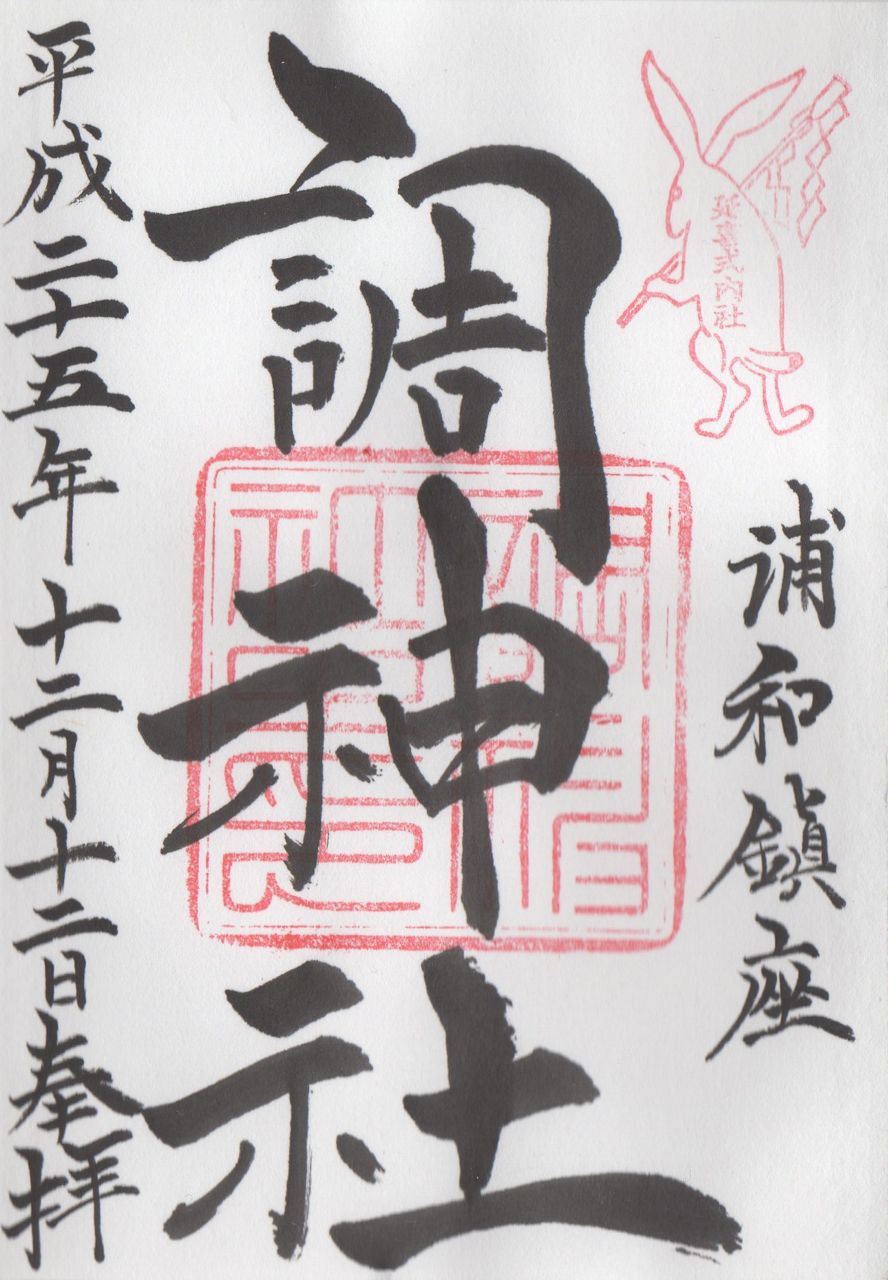 延喜式内社
浦和鎮座
調神社
平成二十五年十二月十二日奉拝